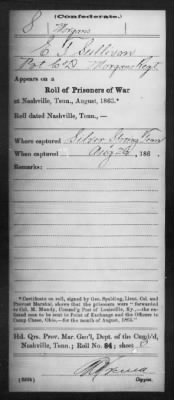 (Confederate.)
S Morgans
E. F. Sullivan
Pvt Co D Morgans Regt.
Appears on a
Roll of Prisoners of War
at Nashville, Tenn., August, 1863.*
Roll dated Nashville, Tenn., —
Where captured Silver Tenn
When captured Aug 186 .
Remarks:
*Certificate on roll, signed by Gen. Spalding, Lieut. Col. and
Provost Marshal, shows that the prisoners were "forwarded
to Col. M. Mundy, Comm'dg Post of Louisville, Ky.,—the en-
listed men to be sent to Point of Exchange and the Officers
to Camp Chase, Ohio,—for the month of August, 1863."
Hd. Qrs. Prov. Mar. Gen'l, Dept. of the Cumb'd,
Nashville, Tenn.; Roll No. 84; sheet 8
Copyist.